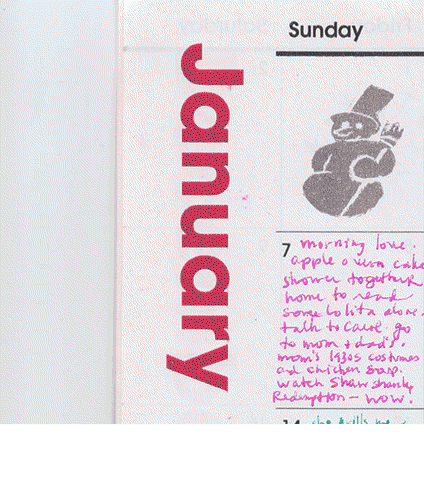 Sunday
January
7 morning love.
apple
shower together
home to read
some lolita alone.
talk to
go
to mom + dad's.
mom's 1930s costumes
and chicken soup.
watch Shawshank
Redemption — wow!
14